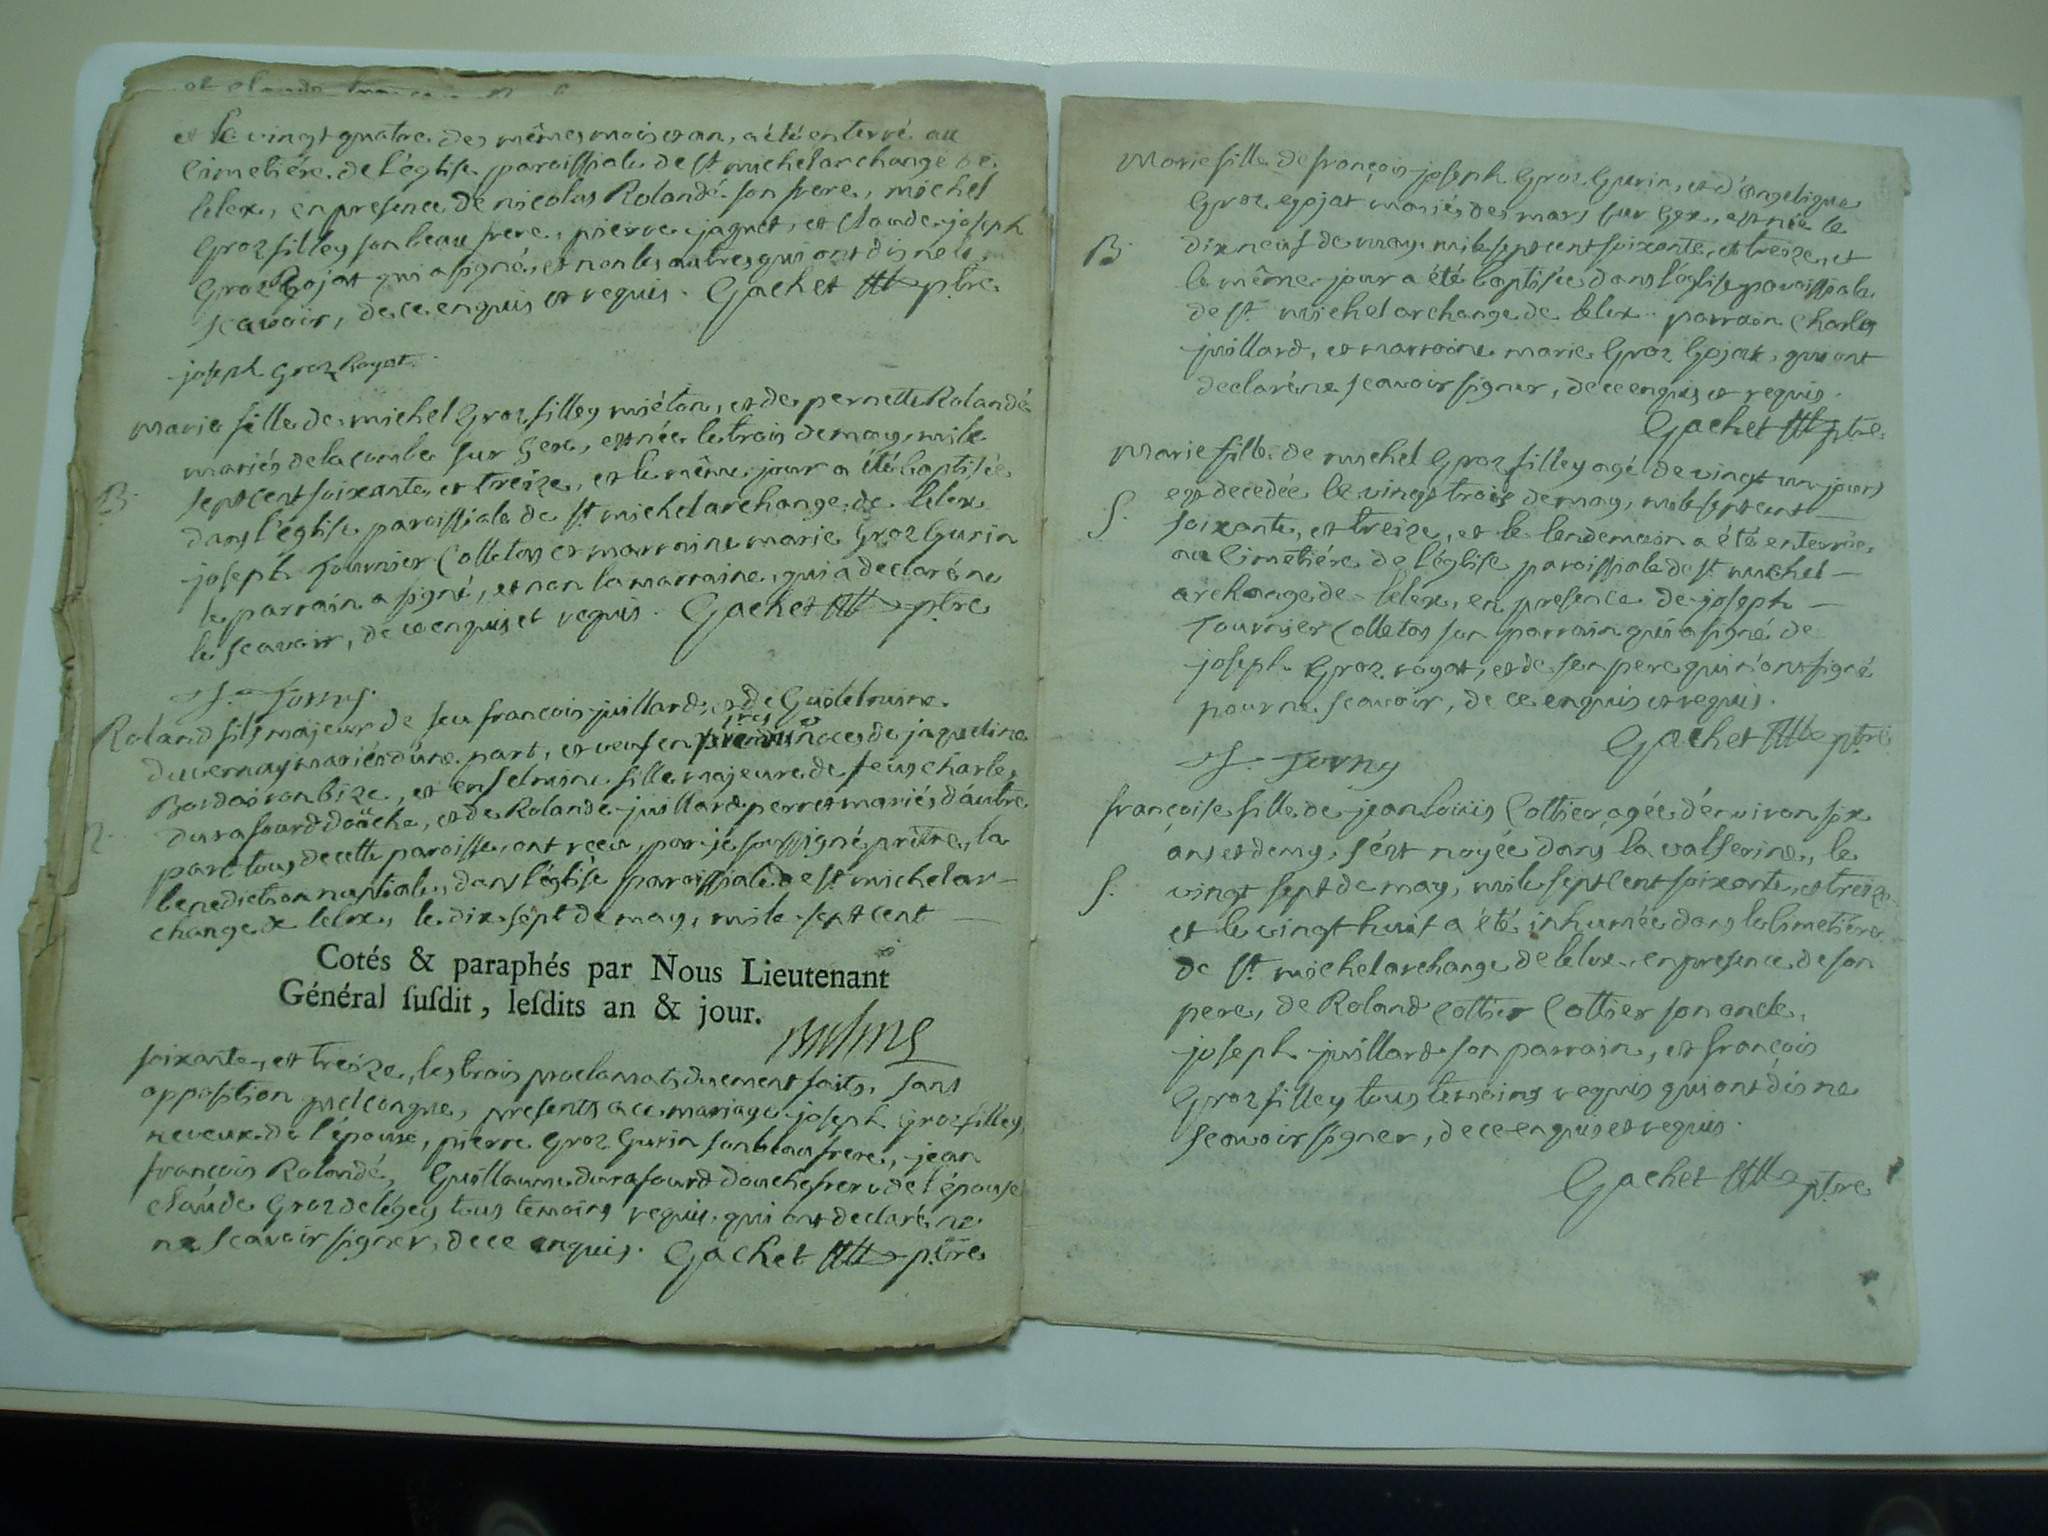 et le vingt quatre des mêmes mois et an, a été enterré au
cimetiére de l'église paroissiale de st michel archange de
lelex, en presence de nicolas Rolandé son frere, michel
Groz filley son beau frere, pierre jaquet, et Claude joseph
Groz Gojat qui a signé, et non les autres qui ont dis ne le
scavoir, de ce enquis et requis. Gachet ptre
joseph Groz Royat
B.
Marie fille de michel Groz filley miéton, et de pernette Rolandé
mariés de la combe sur Gex, est née le trois de may mile
sept cent soixante, et treize, et le même jour a été baptisée
dans l'église paroissiale de st michel archange de lelex
joseph fournier Colletas et marraine marie Groz Gurin
le parrain a signé, et non la marraine, qui a declaré ne
le scavoir, de ce enquis et requis. Gachet ptre
Roland fils majeur de feu françois juillard, et de Guilelmine
ducernay mariés d'une part, et veuf en noces de jaqueline
, et enselmine fille majeure de feus charle
durafourd doüche, et de Rolande juillard perret mariés d'autre
part tous de cette paroisse, ont receu, par je soussigné prêtre, la
benediction nuptiale, dans l'église paroissiale de st michel ar-
change de lelex, le dix sept de may, mile sept cent
Cotés & paraphés par Nous Lieutenant
Général suſdit, leſdits an & jour.
soixante, et treize, les trois proclamats duement faits, sans
opposition quelconque, presents a ce mariage joseph Groz filley
neveux de l'épouse, pierre Groz Gurin son beau frere, jean
françois Rolandé, Guillaume durafourd douche frere de l'épouse
claude Groz delégey tous temoins requis, qui ont declaré ne
ne scavoir signer, de ce enquis. Gachet ptre
Marie fille de françois joseph Groz Gurin, et d'angelique
Groz Gojat mariés des mars sur Gex, est née le
B.
dix neuf de may mile sept cent soixante, et treize, et
le même jour a été baptisée dans l'église paroissiale
de st michel archange de lelex. parrain Charles
juillard, et marraine marie Groz Gojat, qui ont
declaré ne scavoir signer, de ce enquis et requis.
Gachet ptre
Marie fille de michel Groz filley agé de vingt un jours
est decedée le vingt trois de may, mile sept cent
S.
soixante, et treize, et le lendemain a été enterrée
au Cimetiére de l'église paroissiale de st michel
archange de lelex, en presence de joseph
fournier Colletas son parrain qui a signé de
joseph Groz royat, et de son pere qui n'ont signé
pour ne scavoir, de ce enquis et requis.
Gachet ptre
françoise fille de jean louis Cottier agée d'environ six
ans et demy, s'est noyée dans la valserine, le
S.
vingt sept de may, mile sept cent soixante, et treize
et le vingt huit a été inhumée dans le cimetiére
de st michel archange de lelex, en presence de son
pere, de Roland Cottier Cottier son oncle,
joseph juillard son parrain, et françois
Groz filley tous temoins requis qui ont dis ne
scavoir signer, de ce enquis et requis.
Gachet ptre